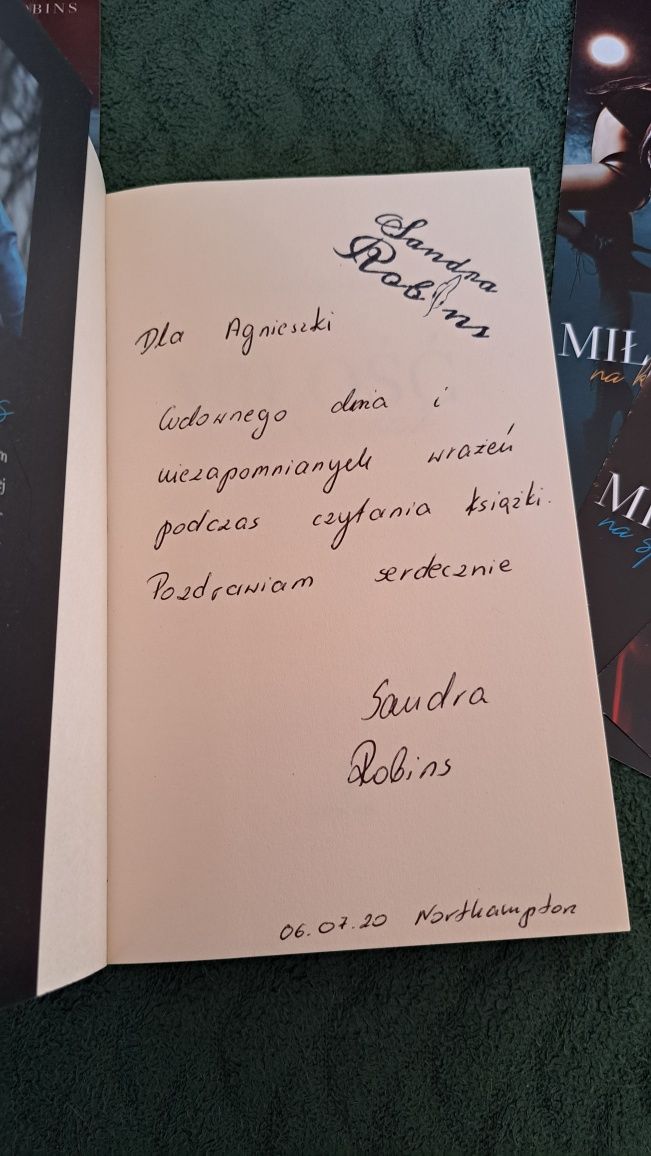 OBINS
Sandra
Robins
Dla Agnieszki
Cudownego dnia i
niezapomnianych wrażeń
podczas czytania książki.
Pozdrawiam serdecznie
Sandra
Robins
06.07.20 Northampton
MIŁ
na k
MI
na sp